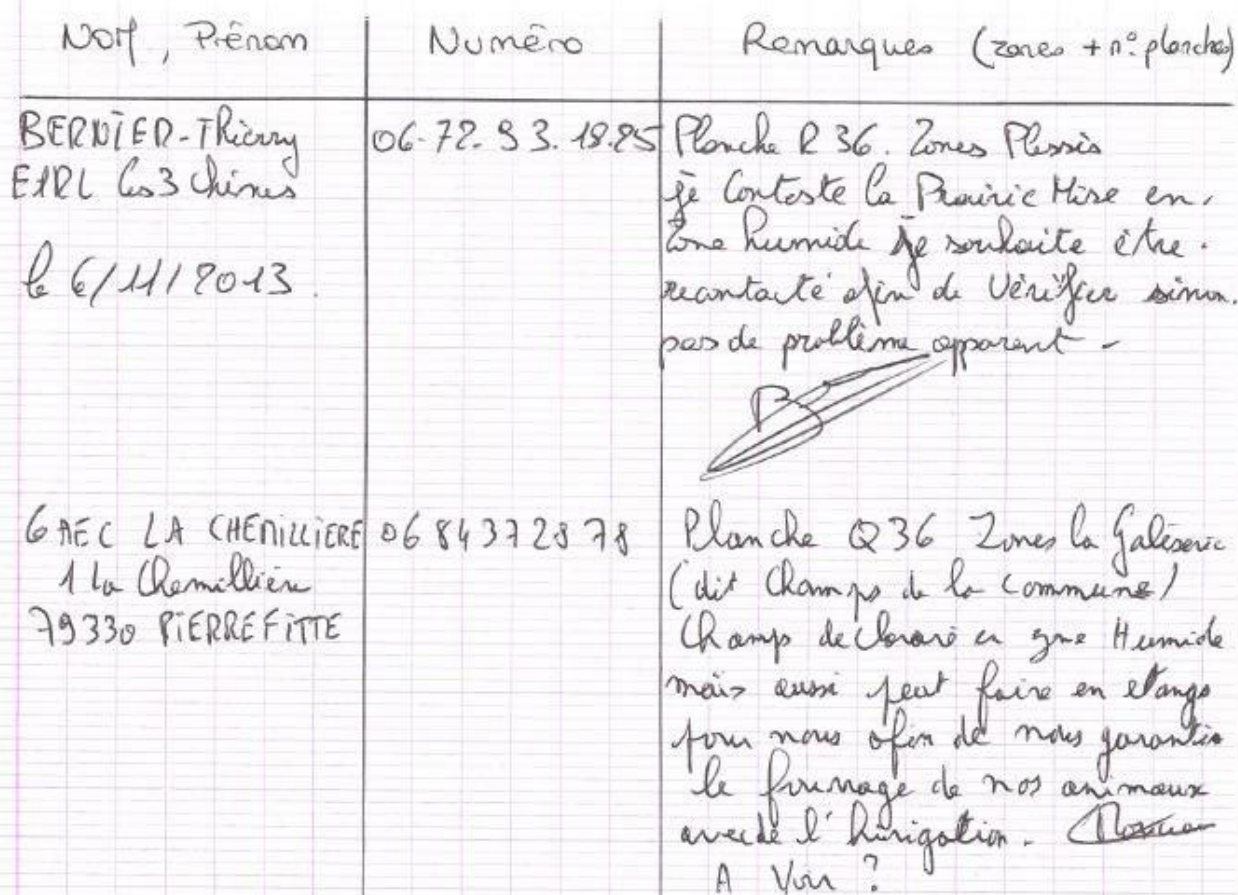 NOM, Prénom
Numéro
Remarques (zones + n° planches)
BERNIER-Thierry
EARL les 3 Chênes
le 6/11/2013.
06-72.93.18.25
Planche R 36. Zones Plessis
je Conteste la Prairie Mise en,
Zone humide je souhaite être.
recontacté afin de Vérifier sinon.
pas de problème apparent -
GAEC LA CHEMILLIERE
1 la Chemillière
79330 PIERREFITTE
06 84 37 28 78
Planche Q36 Zones la
(dit Champs de la commune)
Champ en zone Humide
mais aussi peut faire en etangs
pour nous afin de nous garantir
le fourrage de nos animaux
avec de l'hirigation.
A Voir ?